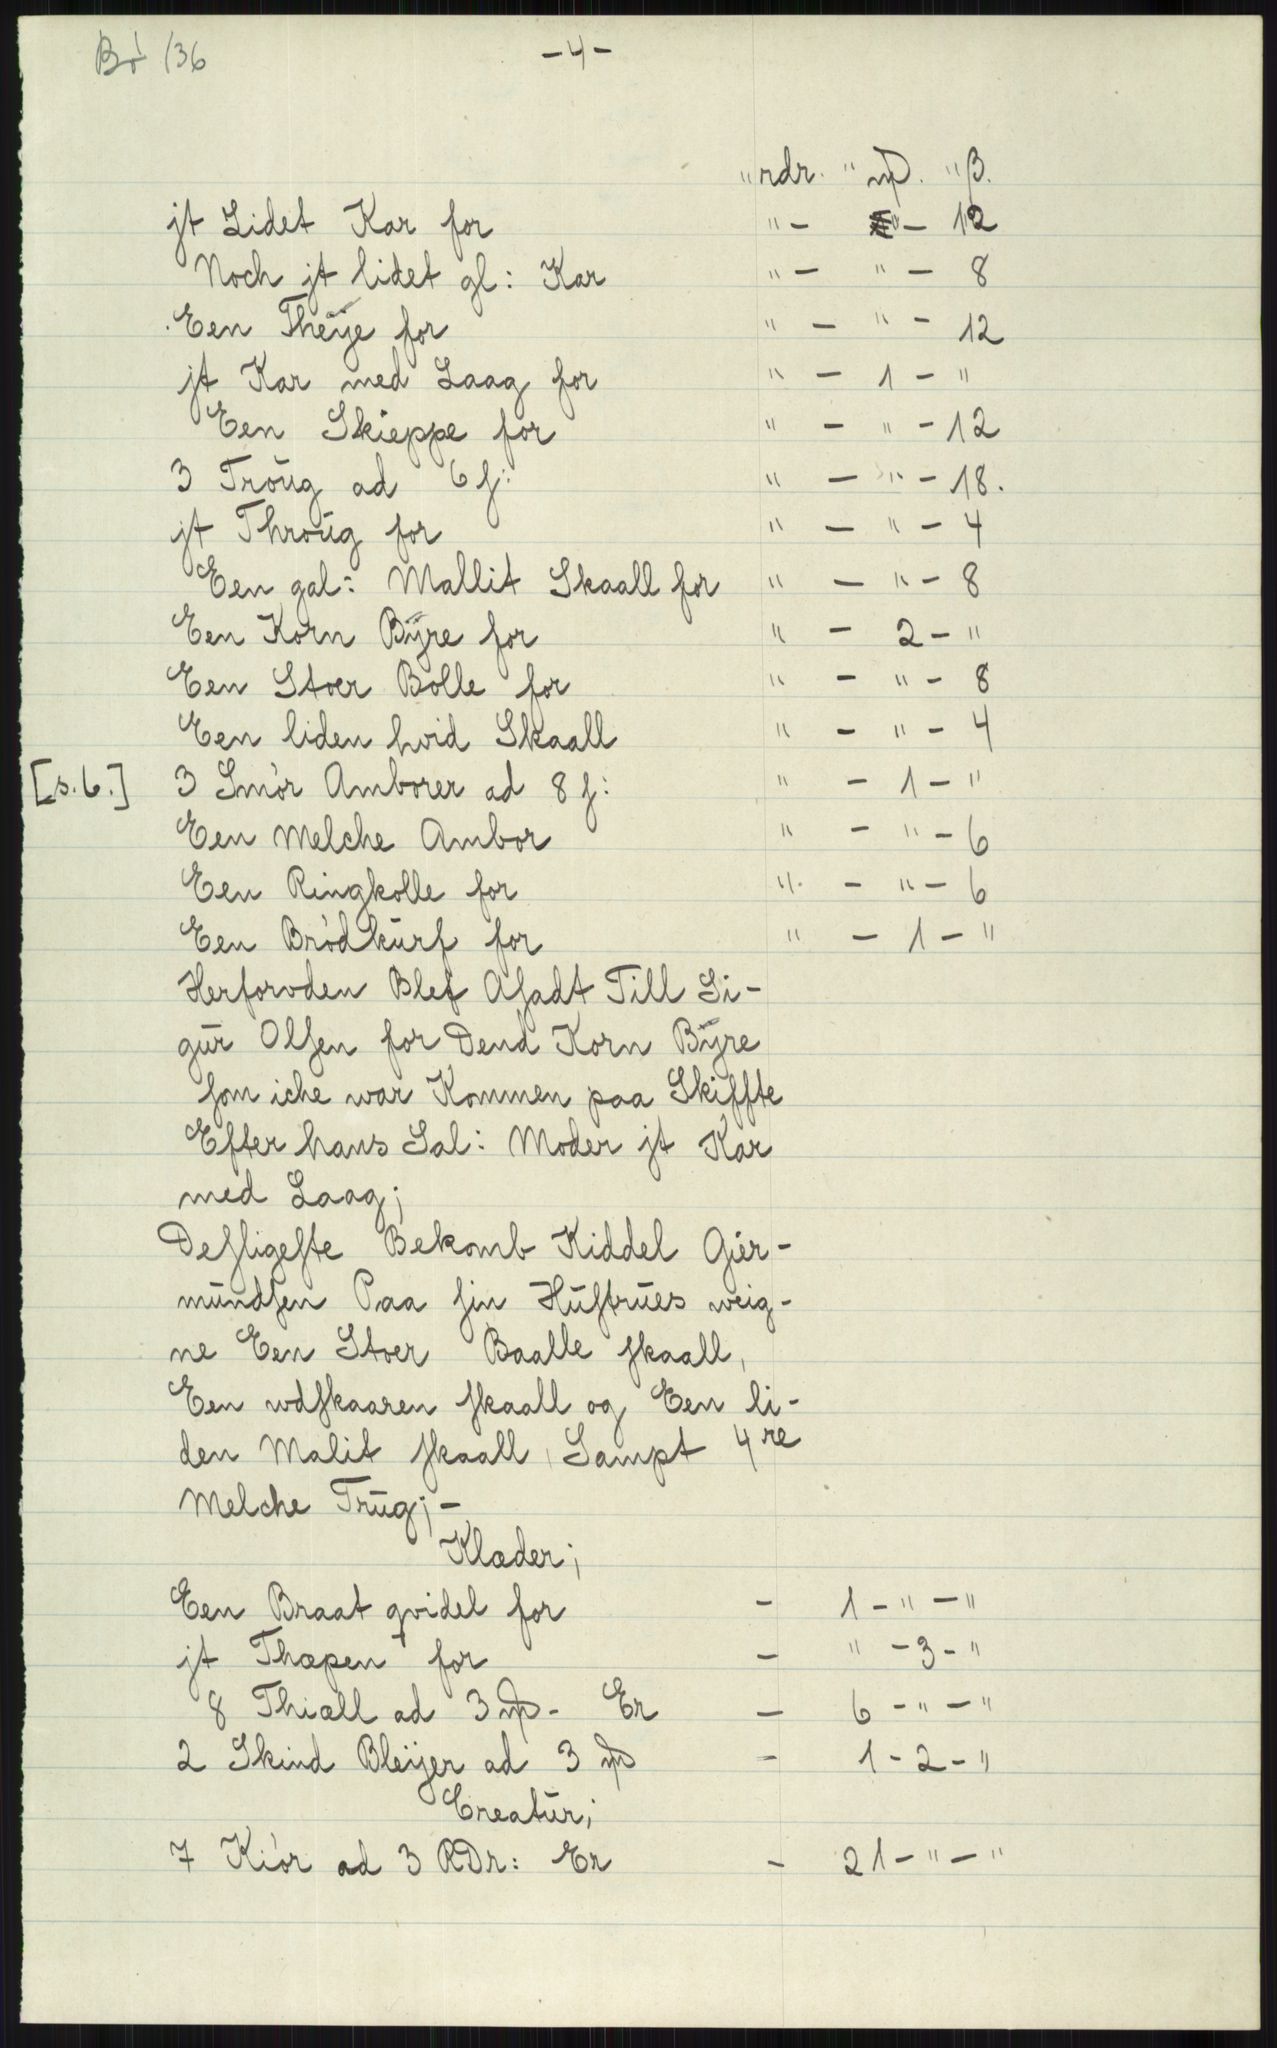 Bö 136
-4-
" rdr. " mþ. " β.
jt Lidet Kar for " - " - 12
Noch jt lidet gl: Kar " - " - 8
Een Theÿe for " - " - 12
jt Kar med Laag for " - 1 - "
Een Skieppe for " - " - 12
3 Troŭg ad 6 ſ: " - " - 18.
jt Throŭg for " - " - 4
Een gal: Mallit Skaall for " - " - 8
Een Korn Bÿre for " - 2 - "
Een Stoer Bolle for " - " - 8
Een liden hvid Skaall " - " - 4
[s. 6.] 3 Smör Amborer ad 8 ſ: " - 1 - "
Een Melche Ambor " - " - 6
Een Ringkolle for " - " - 6
Een Brödkŭrf for " - 1 - "
Herforvden Blef Aſadt Till Si-
gŭr Olſen for Dend Korn Bÿre
ſom iche war Kommen paa Skiffte
Efter hans Sal: Moder jt Kar
med Laag;
Deſligeſte Bekomb Kiddel Gier-
mŭndſen Paa ſin Hŭſtrŭes weig-
ne Een Stoer Baalle ſkaall,
Een wdſkaaren ſkaall og Een li-
den Malit ſkaall, Sampt 4re
Melche Trŭg; -
Klæder;
Een Braat qvidel for - 1 - " - "
jt Thæpen for - " - 3 - "
8 Thiæll ad 3 mþ - Er - 6 - " - "
2 Skind Bleÿer ad 3 mþ - 1 - 2 - "
Creatŭr;
7 Kiör ad 3 RDr: Er - 21 - " - "